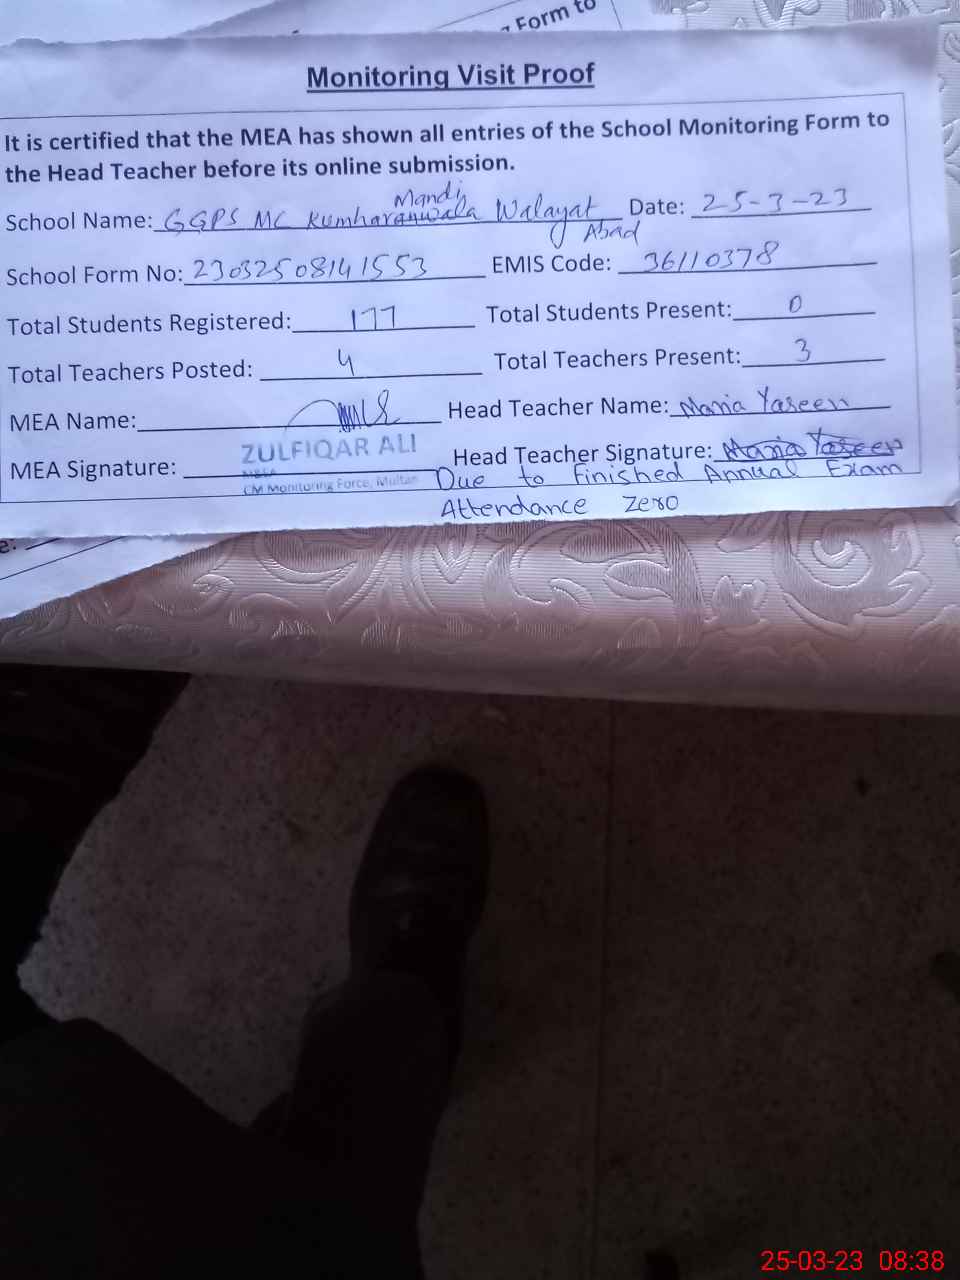 Form to
Monitoring Visit Proof
It is certified that the MEA has shown all entries of the School Monitoring Form to
the Head Teacher before its online submission.
School Name: GGPS MC Kumharanwala Mandi Walayat Abad Date: 25-3-23
School Form No: 23032508141553 EMIS Code: 36110378
Total Students Registered: 177 Total Students Present: 0
Total Teachers Posted: 4 Total Teachers Present: 3
MEA Name: Head Teacher Name: Maria Yaseen
ZULFIQAR ALI
MEA Signature: Head Teacher Signature: Maria Yaseen
MEA
CM Monitoring Force, Multan
Due to Finished Annual Exam
Attendance Zero
e:
25-03-23 08:38